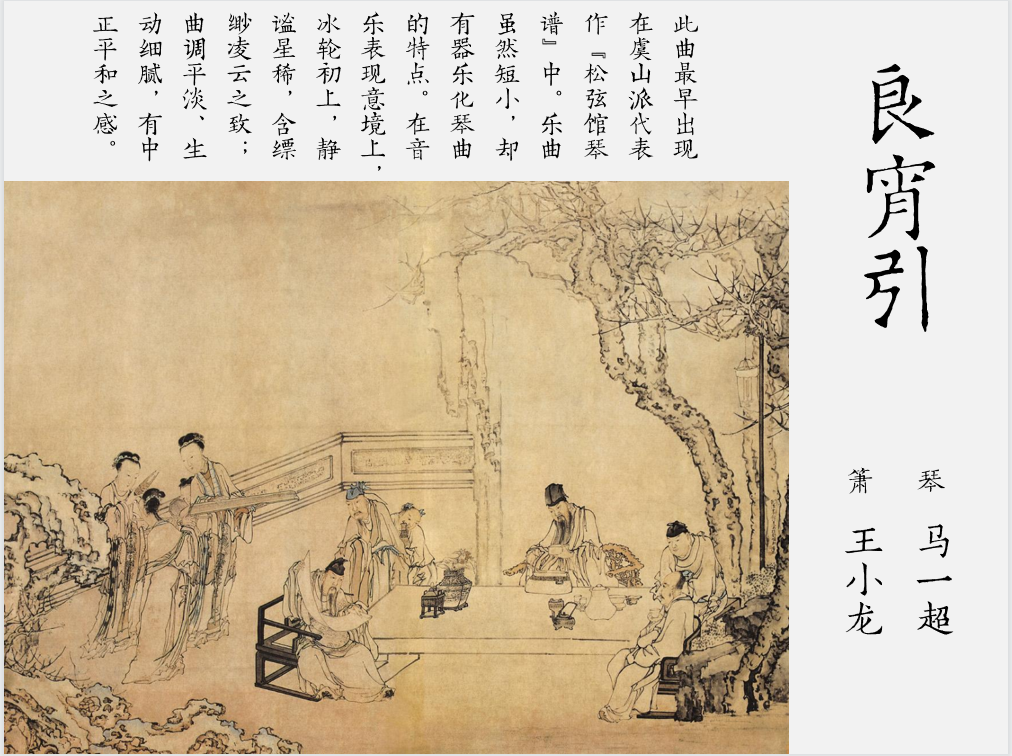 良宵引
琴 马一超
箫 王小龙
此曲最早出现
在虞山派代表
作『松弦馆琴
谱』中。乐曲
虽然短小，却
有器乐化琴曲
的特点。在音
乐表现意境上，
冰轮初上，静
谧星稀，含缥
缈凌云之致；
曲调平淡、生
动细腻，有中
正平和之感。